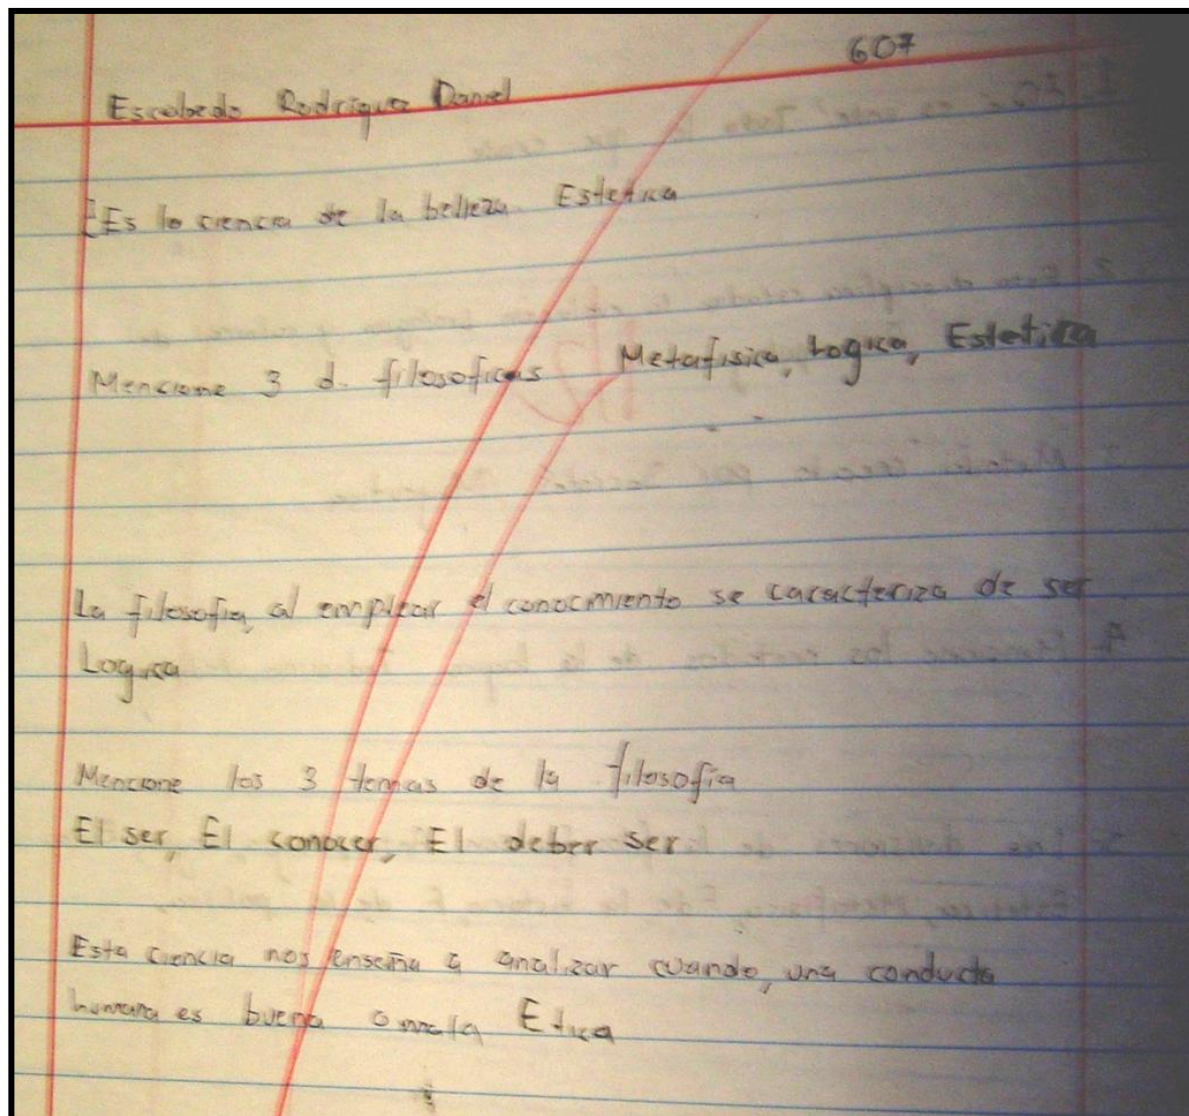 607
Escobedo Rodriguez Daniel
Es la ciencia de la belleza. Estetica
Mencione 3 d. filosoficas Metafisica, Logica, Estetica
La filosofia, al emplear el conocmiento se caracteriza de ser
Logica
Mencione los 3 temas de la filosofia
El ser, El conocer, El deber ser
Esta ciencia nos enseña a analizar cuando, una conducta
humana es buena o mala Etica